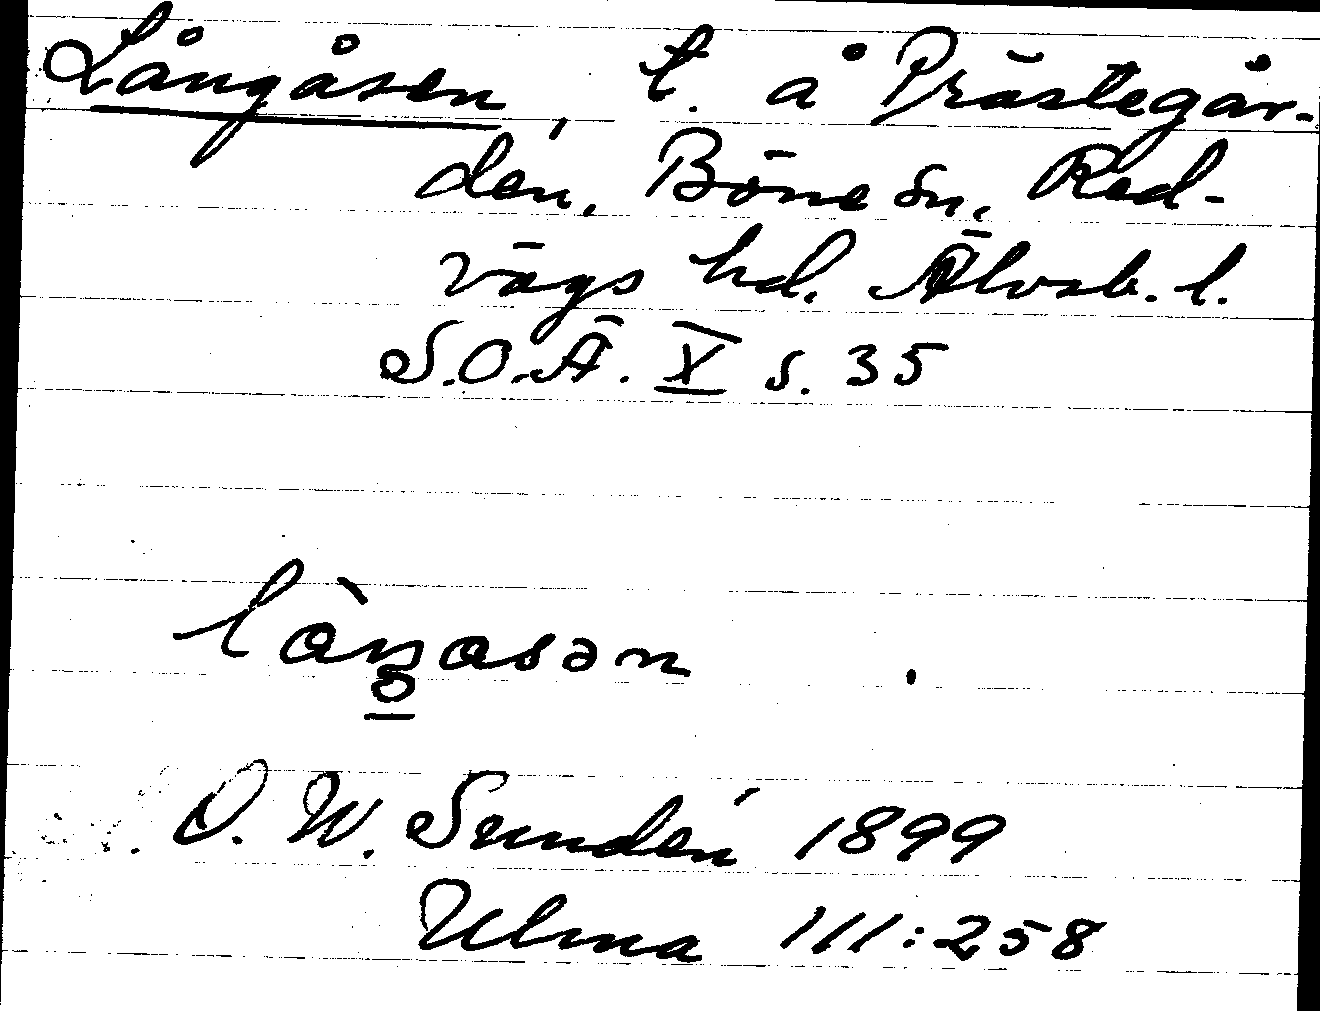 Långåsen, t. å Prästegår-
den, Böne sn, Red-
vägs hd. Älvsb. l.
S.O.Ä. X s. 35
O. W. Sundén 1899
Ulma 111:258